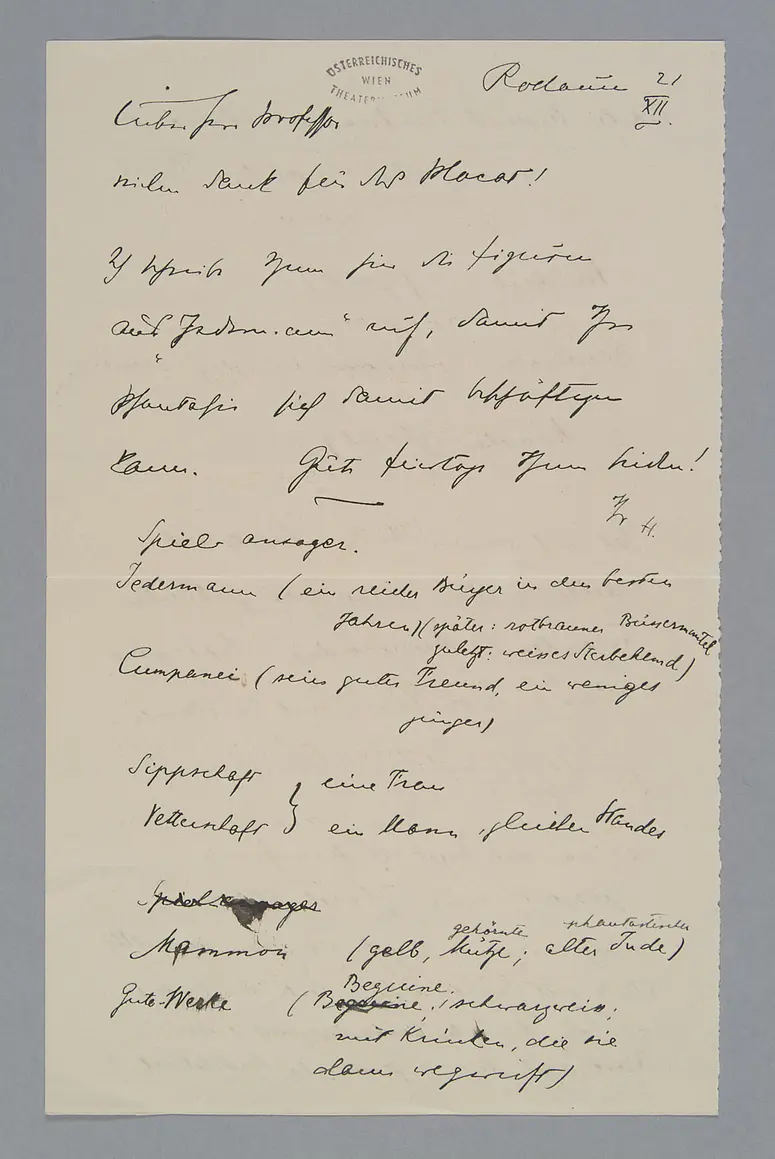 ÖSTERREICHISCHES
WIEN
THEATERMUSEUM
Rodaun 21
XII.
Lieber Herr Professor
vielen Dank für das Placat!
Ich schreibe Ihnen hier die Figuren
aus „Jedermann“ auf, damit Ihre
Phantasie sich damit beschäftigen
kann. Gute Feiertage Ihnen beiden!
Ihr H.
Spielansager.
Jedermann (ein reicher Bürger in den besten
Jahren) (später: rotbrauner Büssermantel
zuletzt: weisses Sterbehemd)
Cumpanei (sein guter Freund, ein weniges
jünger)
Sippschaft } eine Frau
Vetterschaft } ein Mann, gleichen Standes
Spielansager
Mammon (gelb, gehörnte Mütze; phantastischer alter Jude)
Gute-Werke (Beguine Beguine, schwarzweiss;
mit Krücken, die sie
dann wegwirft)